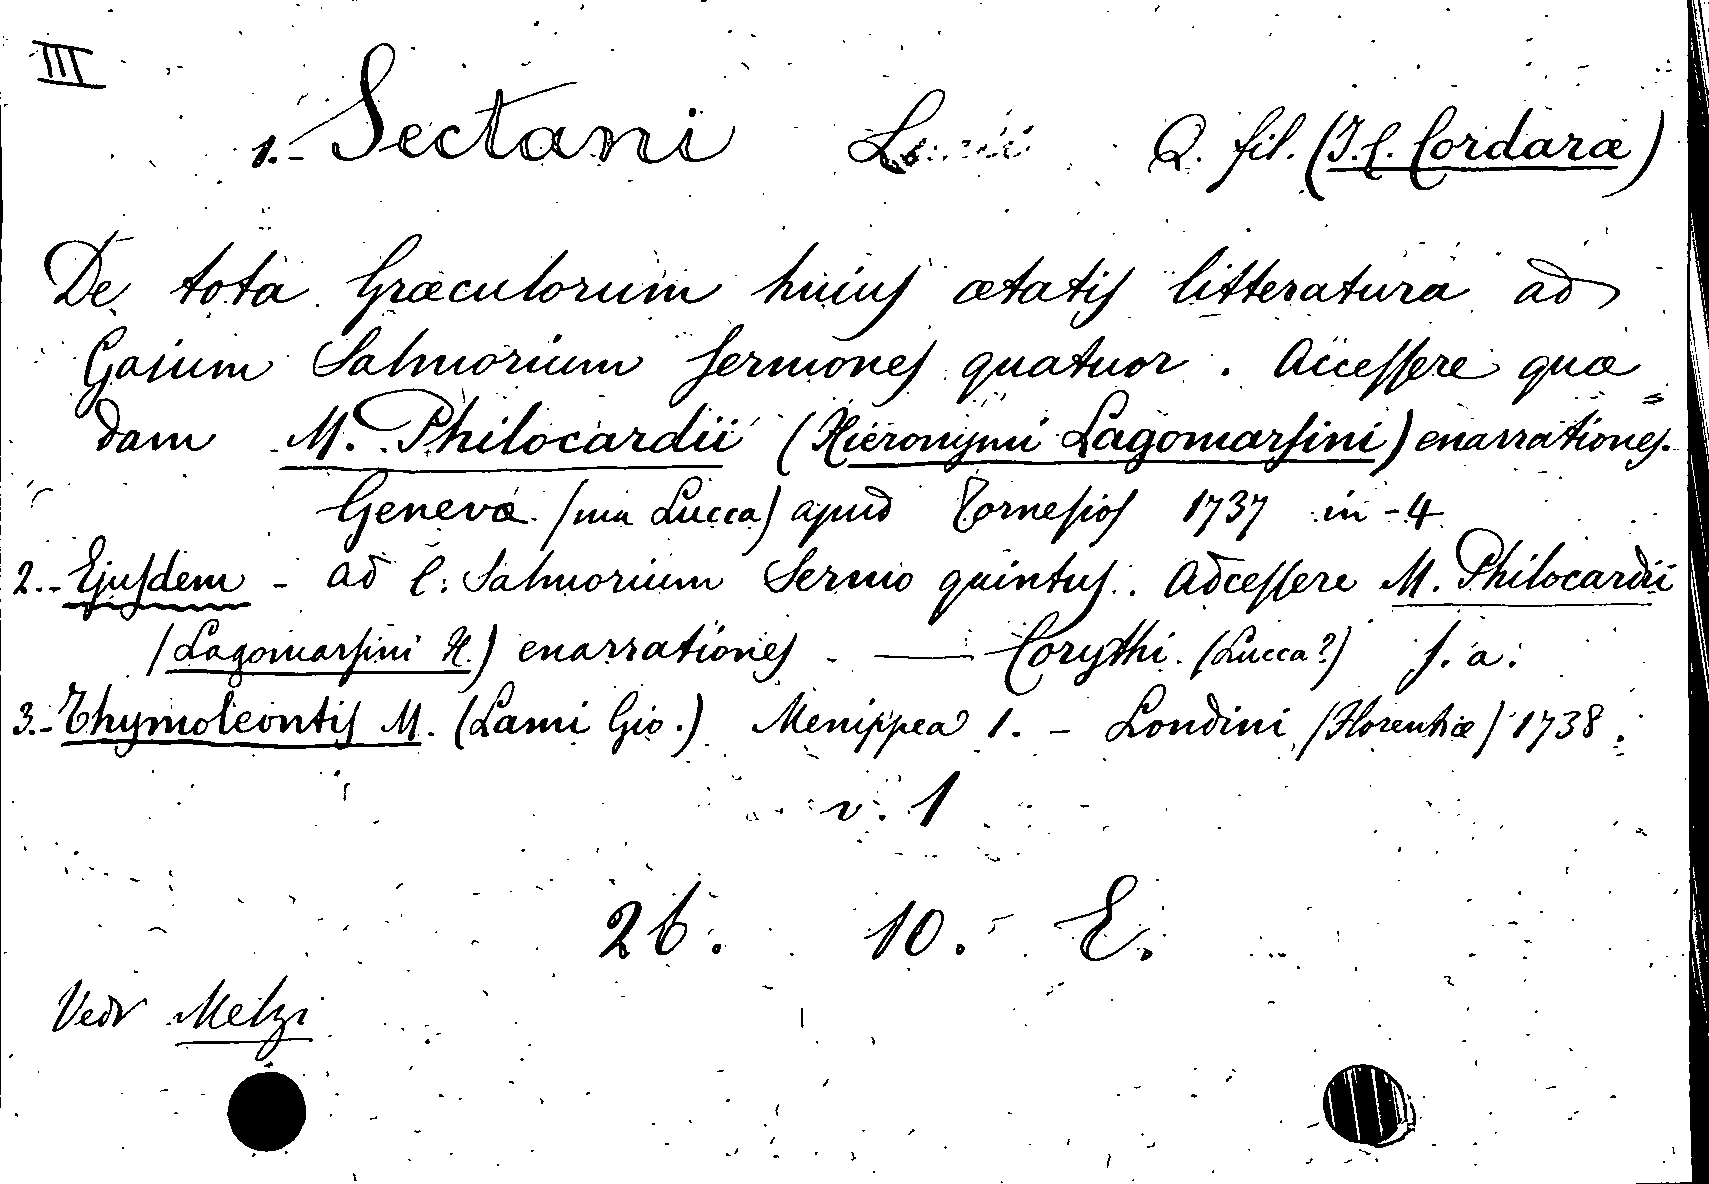 III
1.- Sectani L. Q. fil. (I. C. Cordaræ)
De tota Græculorum huius ætatis litteratura ad
Gaium Salmorium sermones quatuor. Accessere quæ=
dam M. Philocardii (Hieronymi Lagomarsini) enarrationes.
Genevæ (ma Lucca) apud Tornesios 1737 in-4
2.- Ejusdem - ad C. Salmorium Sermo quintus. Adcessere M. Philocardii
(Lagomarsini H.) enarrationes. — Corythi. (Lucca?) s. a.
3.- Thymoleontis M. (Lami Gio.) Menippea 1. - Londini (Florentiæ) 1738.
v. 1
26. 10. E.
Vedi Melzi